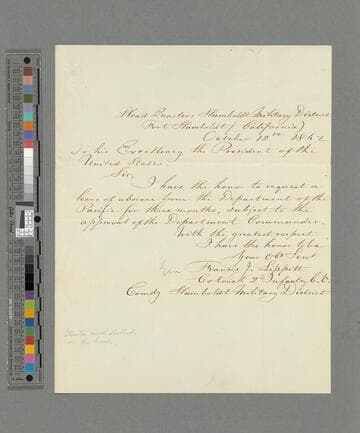 Head Quarters Humboldt Military District
Fort Humboldt (California)
October 12th 1862
To his Excellency the President of the
United States.
Sir,
I have the honor to request a
leave of absence from the Department of the
Pacific for three months, subject to the
approval of the Department Commander.
With the greatest respect
I have the honor to be
Your Obt Servt
Francis J. Lippitt
Colonel 2d Infantry C.V.
Comdg Humboldt Military District